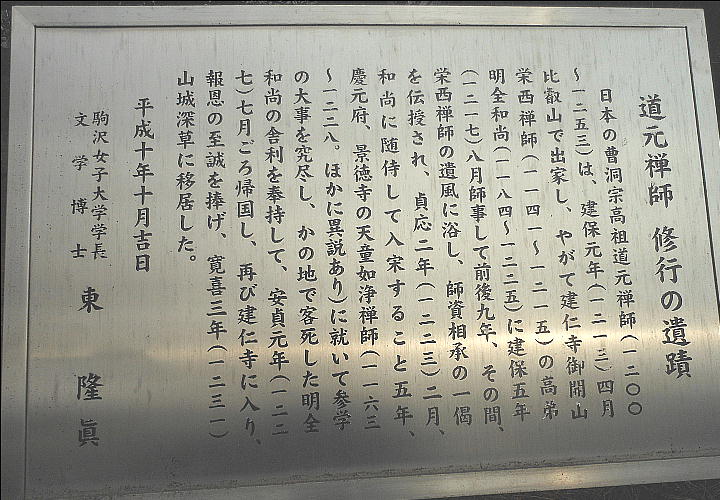 道元禅師 修行の遺蹟
日本の曹洞宗高祖道元禅師(一二〇〇
～一二五三)は、建保元年(一二一三)四月
比叡山で出家し、やがて建仁寺御開山
栄西禅師(一一四一～一二一五)の高弟
明全和尚(一一八四～一二二五)に建保五年
(一二一七)八月師事して前後九年、その間、
栄西禅師の遺風に浴し、師資相承の一偈
を伝授され、貞応二年(一二二三)二月、
和尚に随侍して入宋すること五年、
慶元府、景徳寺の天童如浄禅師(一一六三
～一二二八。ほかに異説あり)に就いて参学
の大事を究尽し、かの地で客死した明全
和尚の舎利を奉持して、安貞元年(一二二
七)七月ごろ帰国し、再び建仁寺に入り、
報恩の至誠を捧げ、寛喜三年(一二三一)
山城深草に移居した。
平成十年十月吉日
駒沢女子大学学長
文学博士 東 隆眞